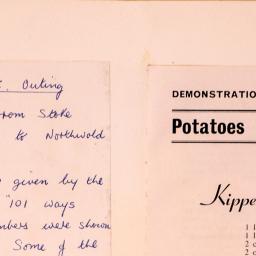 Outing
from Stoke
to Northwold
given by the
"101 ways
were shown
Some of the
DEMONSTRATIO
Potatoes
Kippe